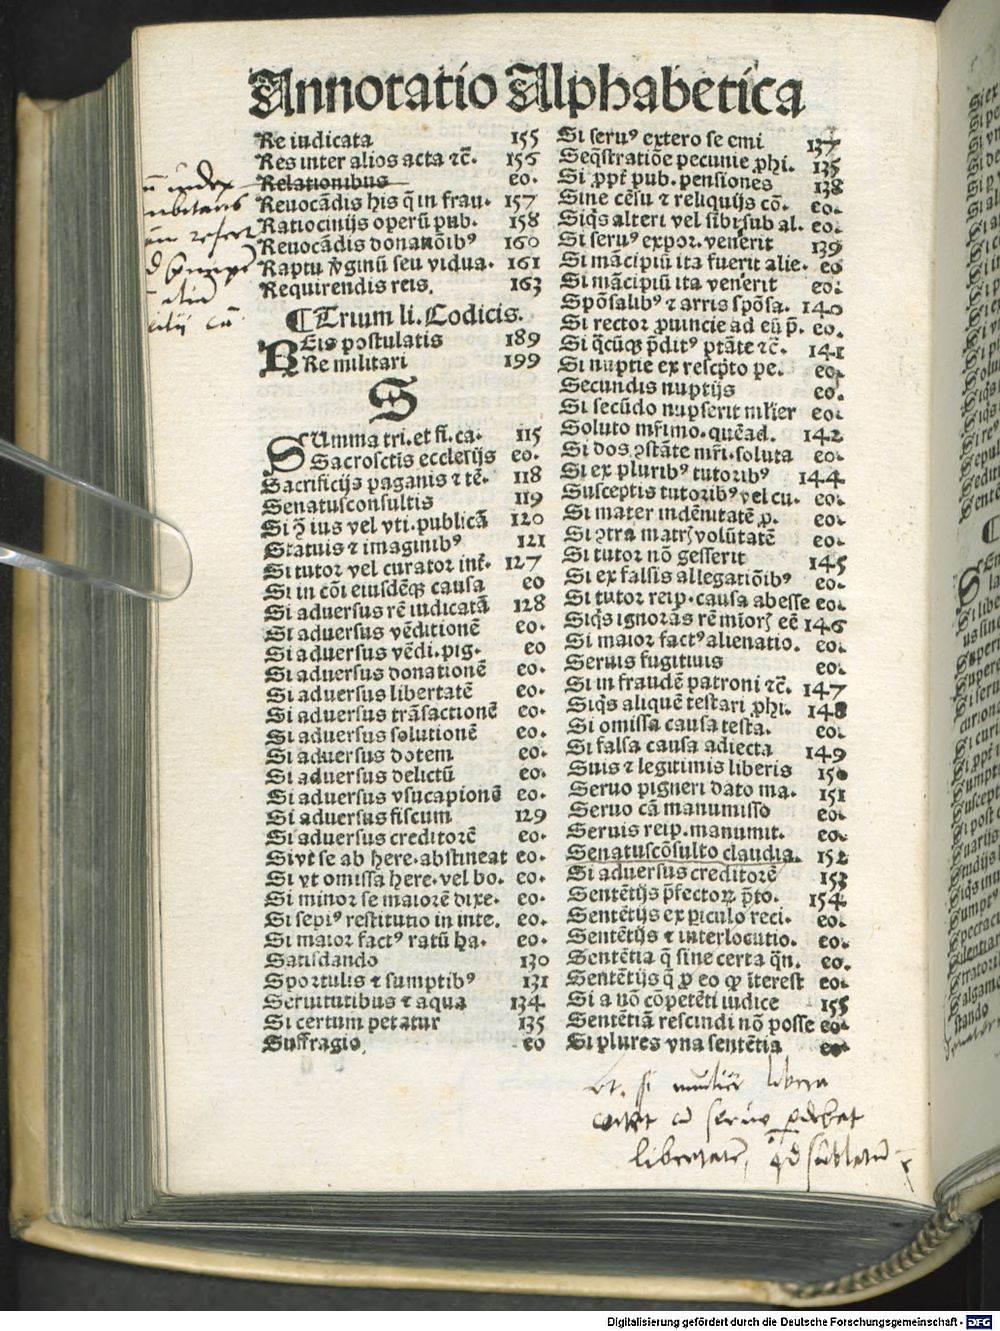 Annotatio Alphabetica
Re iudicata 155
Res inter alios acta ⁊c̄. 156
Relationibus eo.
Reuocãdis his q̃ in frau. 157
Ratiocinijs operũ pub. 158
Reuocãdis donationib⁹ 160
Raptu v̓ginũ seu vidua. 161
Requirendis reis. 163
¶ Trium li. Codicis.
REis postulatis 189
Re militari 199
S
SUmma tri. et fi. ca. 115
Sacrosctis ecclesijs eo.
Sacrificijs paganis ⁊ tẽ. 118
Senatusconsultis 119
Si ꝯ̃ ius vel vti. publicã 120
Statuis ⁊ imaginib⁹ 121
Si tutor vel curator int̃. 127
Si in cõi eiusdẽq̃ causa eo
Si aduersus rẽ iudicatã 128
Si aduersus vẽditionẽ eo.
Si aduersus vẽdi. pig. eo
Si aduersus donationẽ eo.
Si aduersus libertatẽ eo.
Si aduersus trãsactionẽ eo.
Si aduersus solutionẽ eo.
Si aduersus dotem eo.
Si aduersus delictũ eo.
Si aduersus vsucapionẽ eo.
Si aduersus fiscum 129
Si aduersus creditorẽ eo.
Si vt se ab here. abstineat eo.
Si vt omissa here. vel bo. eo.
Si minor se maiorẽ dixe. eo.
Si sepi⁹ restitutio in inte. eo.
Si maior fact⁹ ratũ ha. eo.
Satisdando 130
Sportulis ⁊ sumptib⁹ 131
Seruitutibus ⁊ aqua 134
Si certum petatur 135
Suffragio eo
Si seru⁹ extero se emi 137
Seq̃stratiõe pecunie ꝓhi. 135
Si ꝓpt̃ pub. pensiones 138
Sine cẽsu ⁊ reliquijs cõ. eo.
Siq̃s alteri vel sibi sub al. eo.
Si seru⁹ expor. venerit 139
Si mãcipiũ ita fuerit alie. eo
Si mãcipiũ ita venerit eo.
Spõsalib⁹ ⁊ arris spõsa. 140
Si rector ꝓuincie ad eũ p̃. eo.
Si q̃cũq̃ p̃dit⁹ ptãte ⁊c̄. 141
Si nuptie ex rescp̃to pe. eo.
Secundis nuptijs eo.
Si secũdo nupserit mlier eo.
Soluto mr̃imo. quẽad. 142
Si dos ꝯstãte mr̃i. soluta eo.
Si ex plurib⁹ tutorib⁹ 144
Susceptis tutorib⁹ vel cu. eo.
Si mater indẽnitatẽ ꝓ. eo.
Si ꝯtra matrꝭ volũtatẽ eo.
Si tutor nõ gesserit 145
Si ex falsis allegatiõib⁹ eo.
Si tutor reip. causa abesse eo.
Siq̃s ignorãs rẽ miorꝭ eẽ 146
Si maior fact⁹ alienatio. eo.
Seruis fugitiuis eo.
Si in fraudẽ patroni ⁊c̄. 147
Siq̃s aliquẽ testari ꝓhi. 148
Si omissa causa testa. eo.
Si falsa causa adiecta 149
Suis ⁊ legitimis liberis 150
Seruo pigneri dato ma. 151
Seruo cã manumisso eo.
Seruis reip. manumit. eo.
Senatuscõsulto claudia. 152
Si aduersus creditorẽ 153
Sentẽtijs p̃fectorꝝ p̃to. 154
Sentẽtijs ex p̱iculo reci. eo.
Sentẽtijs ⁊ interlocutio. eo.
Sentẽtia q̃ sine certa q̃n. eo.
Sentẽtijs q̃ ꝓ eo ꝙ ĩterest eo.
Si a nõ cõpetẽti iudice 155
Sentẽtiã rescindi nõ posse eo.
Si plures vna sentẽtia eo.
vt. si mulier libera
libertatẽ, qd sublatũ
Digitalisierung gefördert durch die Deutsche Forschungsgemeinschaft - DFG